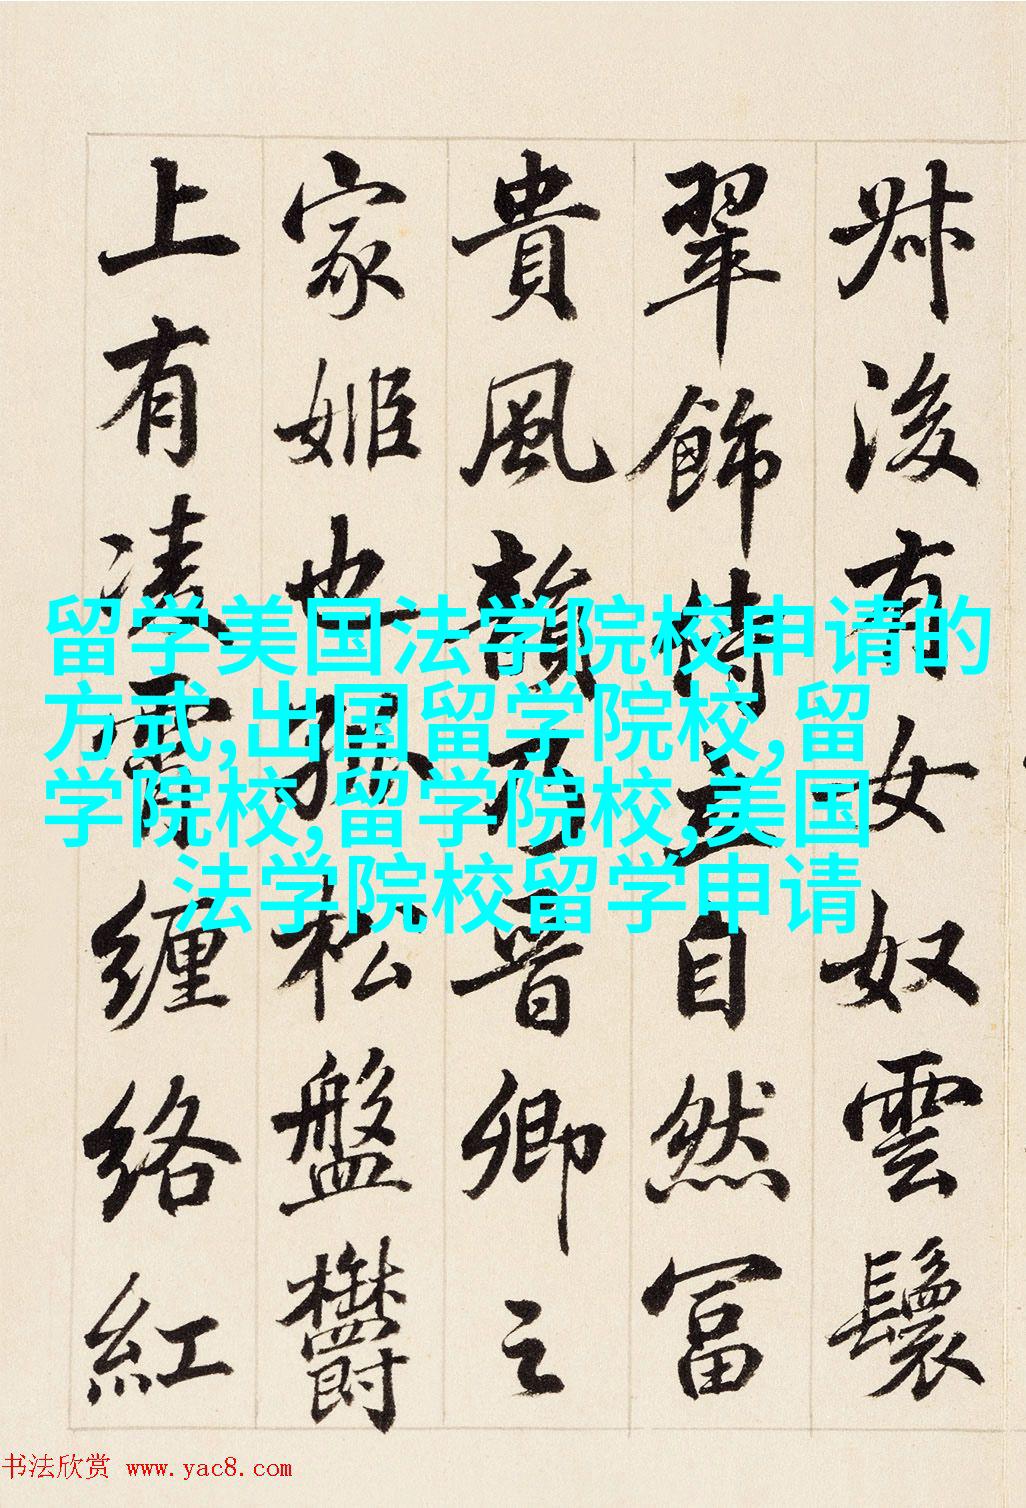 叔後有女奴雲鬟
翠飾侍立自然富
貴風韻乃晉卿之
家姬也孤松盤欝
上有凌霄纏絡紅
留学美国法学院校申请的
方式,出国留学院校,留
学院校,留学院校,美国
法学院校留学申请
书法欣赏 www.yac8.com